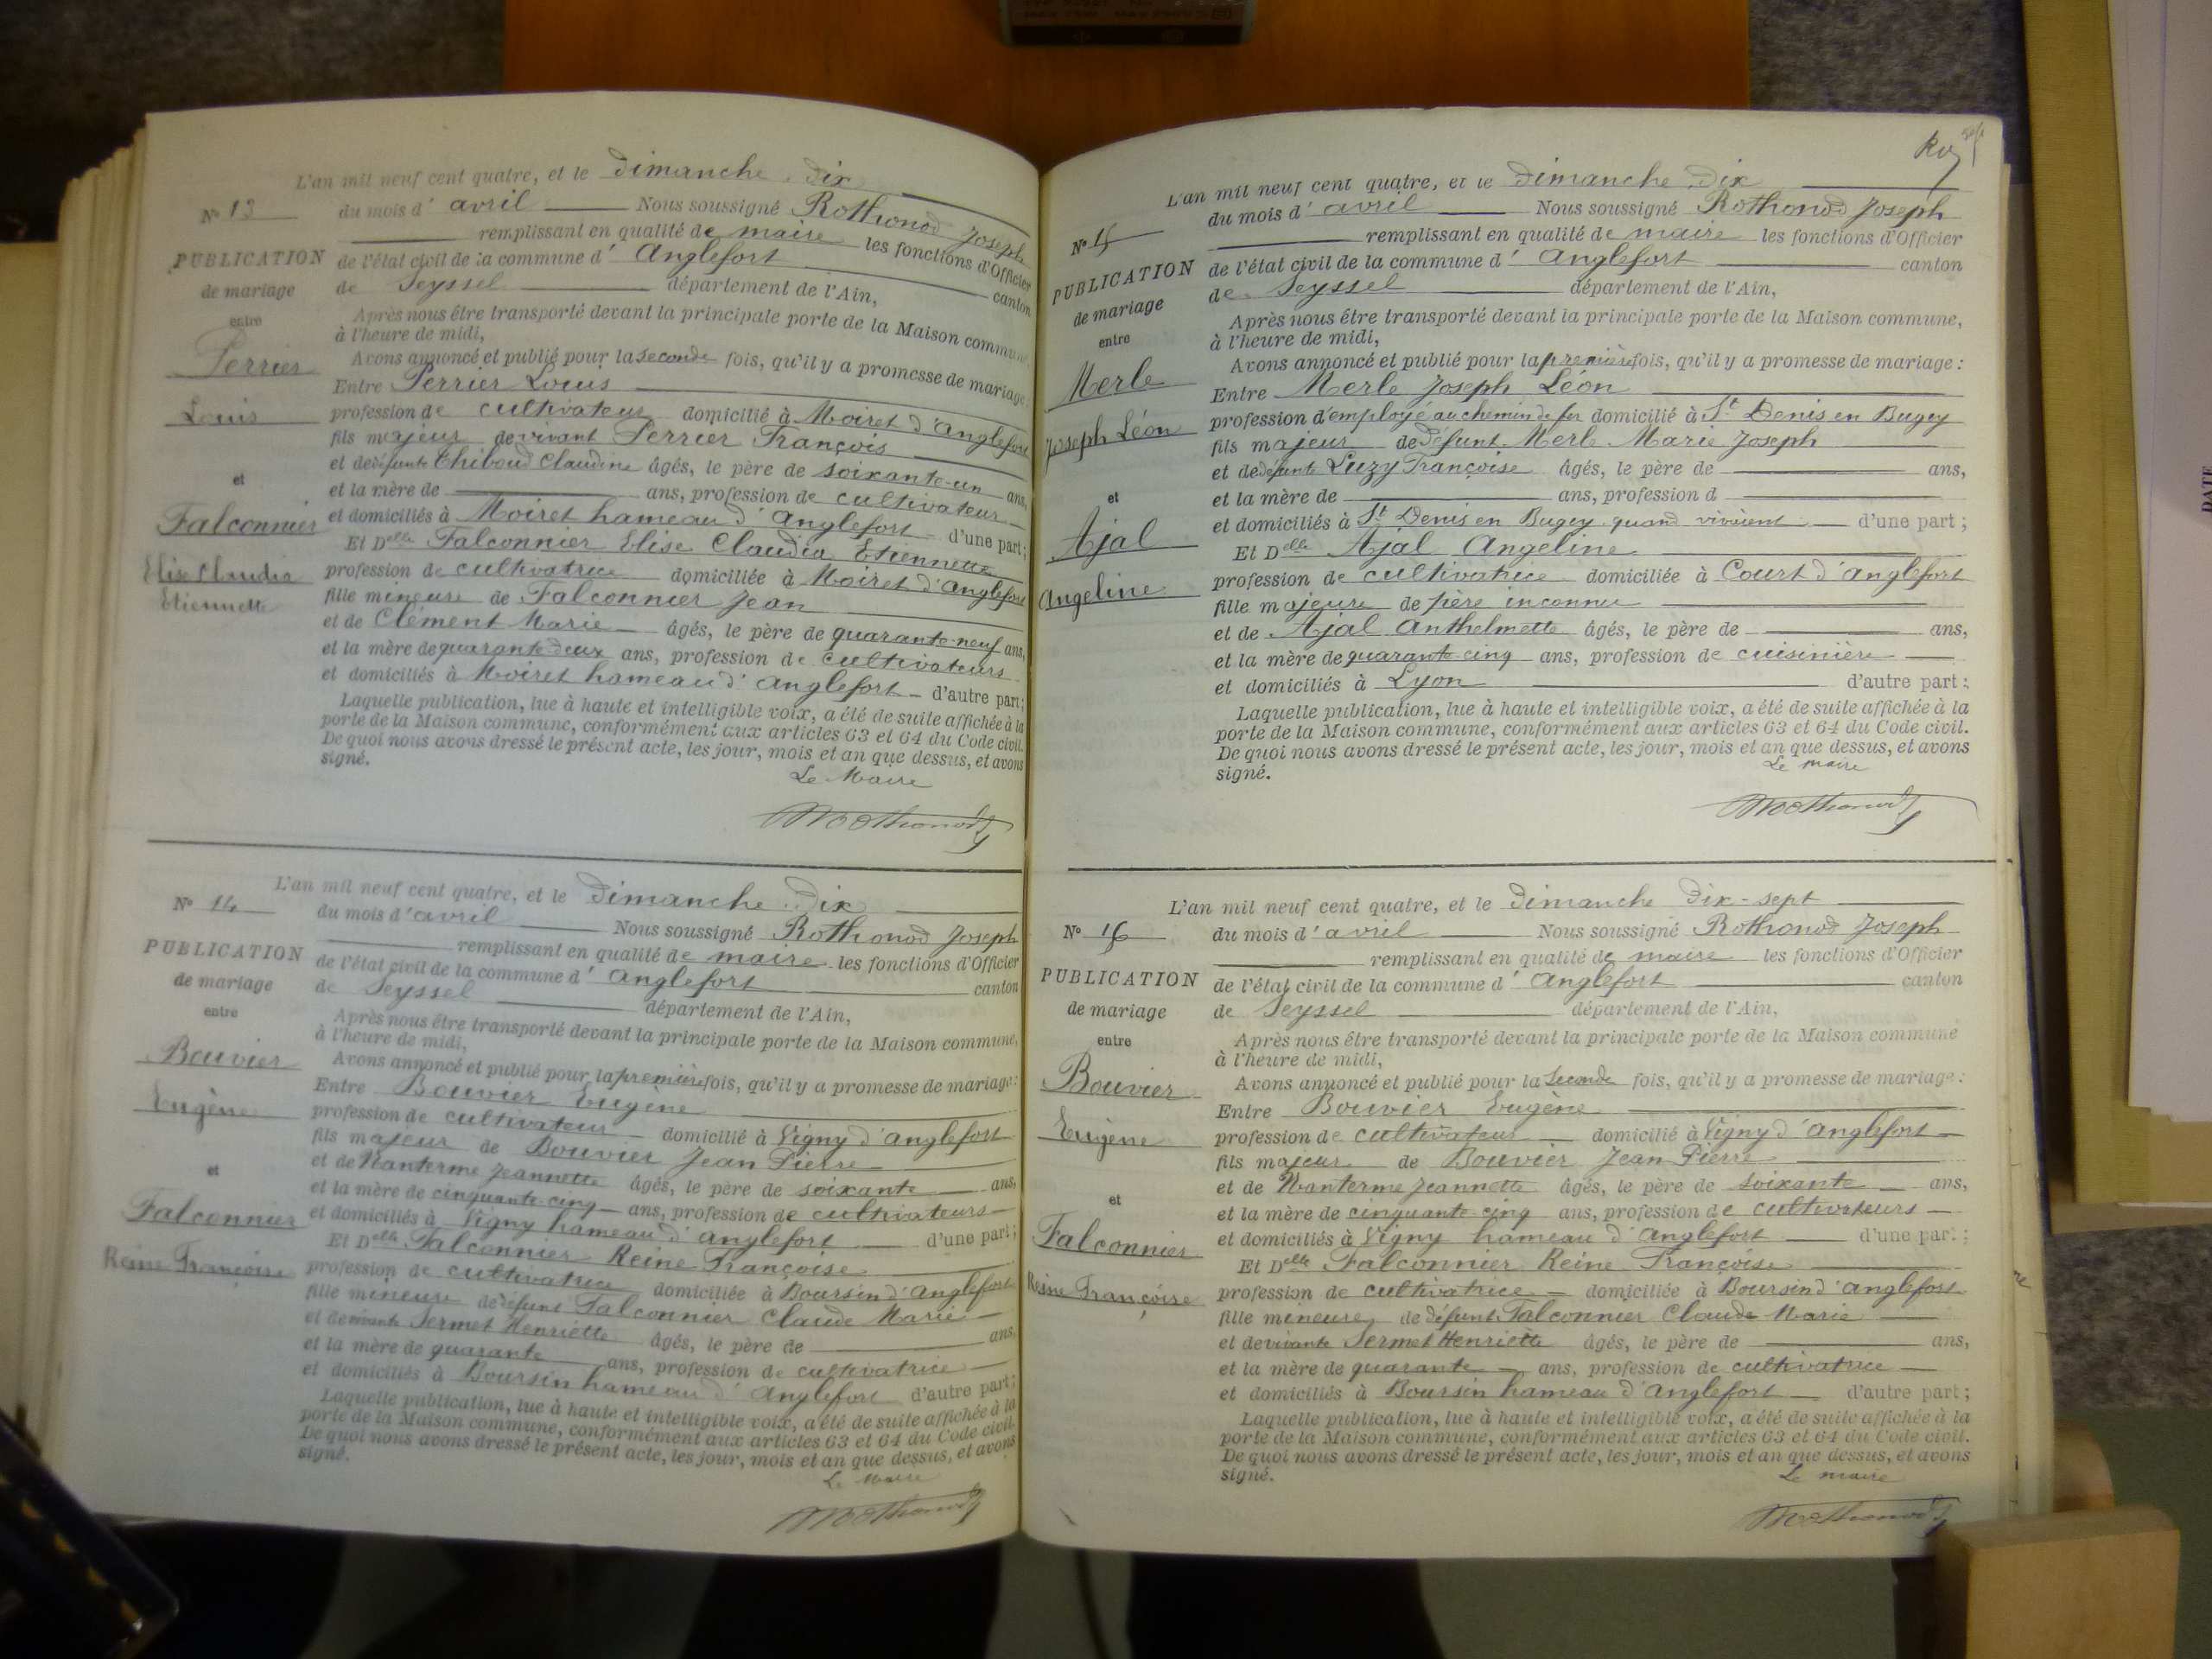 L'an mil neuf cent quatre, et le Dimanche Dix
Nº 13 du mois d' avril Nous soussigné Rothonod Joseph
remplissant en qualité de maire les fonctions d'Officier
PUBLICATION
de mariage
entre
Perrier
Louis
et
Falconnier
Elise Claudia
Etiennette
de l'état civil de la commune d' Anglefort canton
de Seyssel département de l'Ain,
Après nous être transporté devant la principale porte de la Maison commune,
à l'heure de midi,
Avons annoncé et publié pour la seconde fois, qu'il y a promesse de mariage:
Entre Perrier Louis
profession de cultivateur domicilié à Moiret d'Anglefort
fils majeur de vivant Perrier François
et de défunte Thiboud Claudine âgés, le père de soixante-un ans,
et la mère de ans, profession de cultivateur
et domiciliés à Moiret hameau d' Anglefort d'une part;
Et Delle Falconnier Elise Claudia Etiennette
profession de cultivatrice domiciliée à Moiret d'Anglefort
fille mineure de Falconnier Jean
et de Clément Marie âgés, le père de quarante-neuf ans,
et la mère de quarante deux ans, profession de cultivateurs
et domiciliés à Moiret hameau d' Anglefort d'autre part;
Laquelle publication, lue à haute et intelligible voix, a été de suite affichée à la
porte de la Maison commune, conformément aux articles 63 et 64 du Code civil.
De quoi nous avons dressé le présent acte, les jour, mois et an que dessus, et avons
signé.
Le Maire
Rothonod J
L'an mil neuf cent quatre, et le Dimanche Dix
Nº 14 du mois d' avril Nous soussigné Rothonod Joseph
remplissant en qualité de maire les fonctions d'Officier
PUBLICATION
de mariage
entre
Bouvier
Eugène
et
Falconnier
Reine Françoise
de l'état civil de la commune d' Anglefort canton
de Seyssel département de l'Ain,
Après nous être transporté devant la principale porte de la Maison commune,
à l'heure de midi,
Avons annoncé et publié pour la première fois, qu'il y a promesse de mariage:
Entre Bouvier Eugène
profession de cultivateur domicilié à Vigny d'Anglefort
fils majeur de Bouvier Jean Pierre
et de Nanterme Jeannette âgés, le père de soixante ans,
et la mère de cinquante-cinq ans, profession de cultivateurs
et domiciliés à Vigny hameau d' Anglefort d'une part;
Et Delle Falconnier Reine Françoise
profession de cultivatrice domiciliée à Boursin d'Anglefort
fille mineure de défunt Falconnier Claude Marie
et de vivante Sermet Henriette âgés, le père de ans,
et la mère de quarante ans, profession de cultivatrice
et domiciliés à Boursin hameau d' Anglefort d'autre part;
Laquelle publication, lue à haute et intelligible voix, a été de suite affichée à la
porte de la Maison commune, conformément aux articles 63 et 64 du Code civil.
De quoi nous avons dressé le présent acte, les jour, mois et an que dessus, et avons
signé.
Le Maire
Rothonod J
L'an mil neuf cent quatre, et le Dimanche Dix
Nº 15 du mois d' avril Nous soussigné Rothonod Joseph
remplissant en qualité de maire les fonctions d'Officier
PUBLICATION
de mariage
entre
Merle
Joseph Léon
et
Ajal
Angeline
de l'état civil de la commune d' Anglefort canton
de Seyssel département de l'Ain,
Après nous être transporté devant la principale porte de la Maison commune,
à l'heure de midi,
Avons annoncé et publié pour la première fois, qu'il y a promesse de mariage:
Entre Merle Joseph Léon
profession d'employé au chemin de fer domicilié à St Denis en Bugey
fils majeur de défunt Merle Marie Joseph
et de défunte Luzy Françoise âgés, le père de ans,
et la mère de ans, profession d
et domiciliés à St Denis en Bugey quand vivaient d'une part;
Et Delle Ajal Angeline
profession de cultivatrice domiciliée à Court d'Anglefort
fille majeure de père inconnu
et de Ajal Anthelmette âgés, le père de ans,
et la mère de quarante-cinq ans, profession de cuisinière
et domiciliés à Lyon d'autre part;
Laquelle publication, lue à haute et intelligible voix, a été de suite affichée à la
porte de la Maison commune, conformément aux articles 63 et 64 du Code civil.
De quoi nous avons dressé le présent acte, les jour, mois et an que dessus, et avons
signé.
Le maire
Rothonod J
L'an mil neuf cent quatre, et le Dimanche Dix-sept
Nº 16 du mois d' avril Nous soussigné Rothonod Joseph
remplissant en qualité de maire les fonctions d'Officier
PUBLICATION
de mariage
entre
Bouvier
Eugène
et
Falconnier
Reine Françoise
de l'état civil de la commune d' Anglefort canton
de Seyssel département de l'Ain,
Après nous être transporté devant la principale porte de la Maison commune
à l'heure de midi,
Avons annoncé et publié pour la seconde fois, qu'il y a promesse de mariage:
Entre Bouvier Eugène
profession de cultivateur domicilié à Vigny d'Anglefort
fils majeur de Bouvier Jean Pierre
et de Nanterme Jeannette âgés, le père de soixante ans,
et la mère de cinquante-cinq ans, profession de cultivateurs
et domiciliés à Vigny hameau d'Anglefort d'une part;
Et Delle Falconnier Reine Françoise
profession de cultivatrice domiciliée à Boursin d'Anglefort
fille mineure de défunt Falconnier Claude Marie
et de vivante Sermet Henriette âgés, le père de ans,
et la mère de quarante ans, profession de cultivatrice
et domiciliés à Boursin hameau d'Anglefort d'autre part;
Laquelle publication, lue à haute et intelligible voix, a été de suite affichée à la
porte de la Maison commune, conformément aux articles 63 et 64 du Code civil.
De quoi nous avons dressé le présent acte, les jour, mois et an que dessus, et avons
signé.
Le maire
Rothonod J
DATE